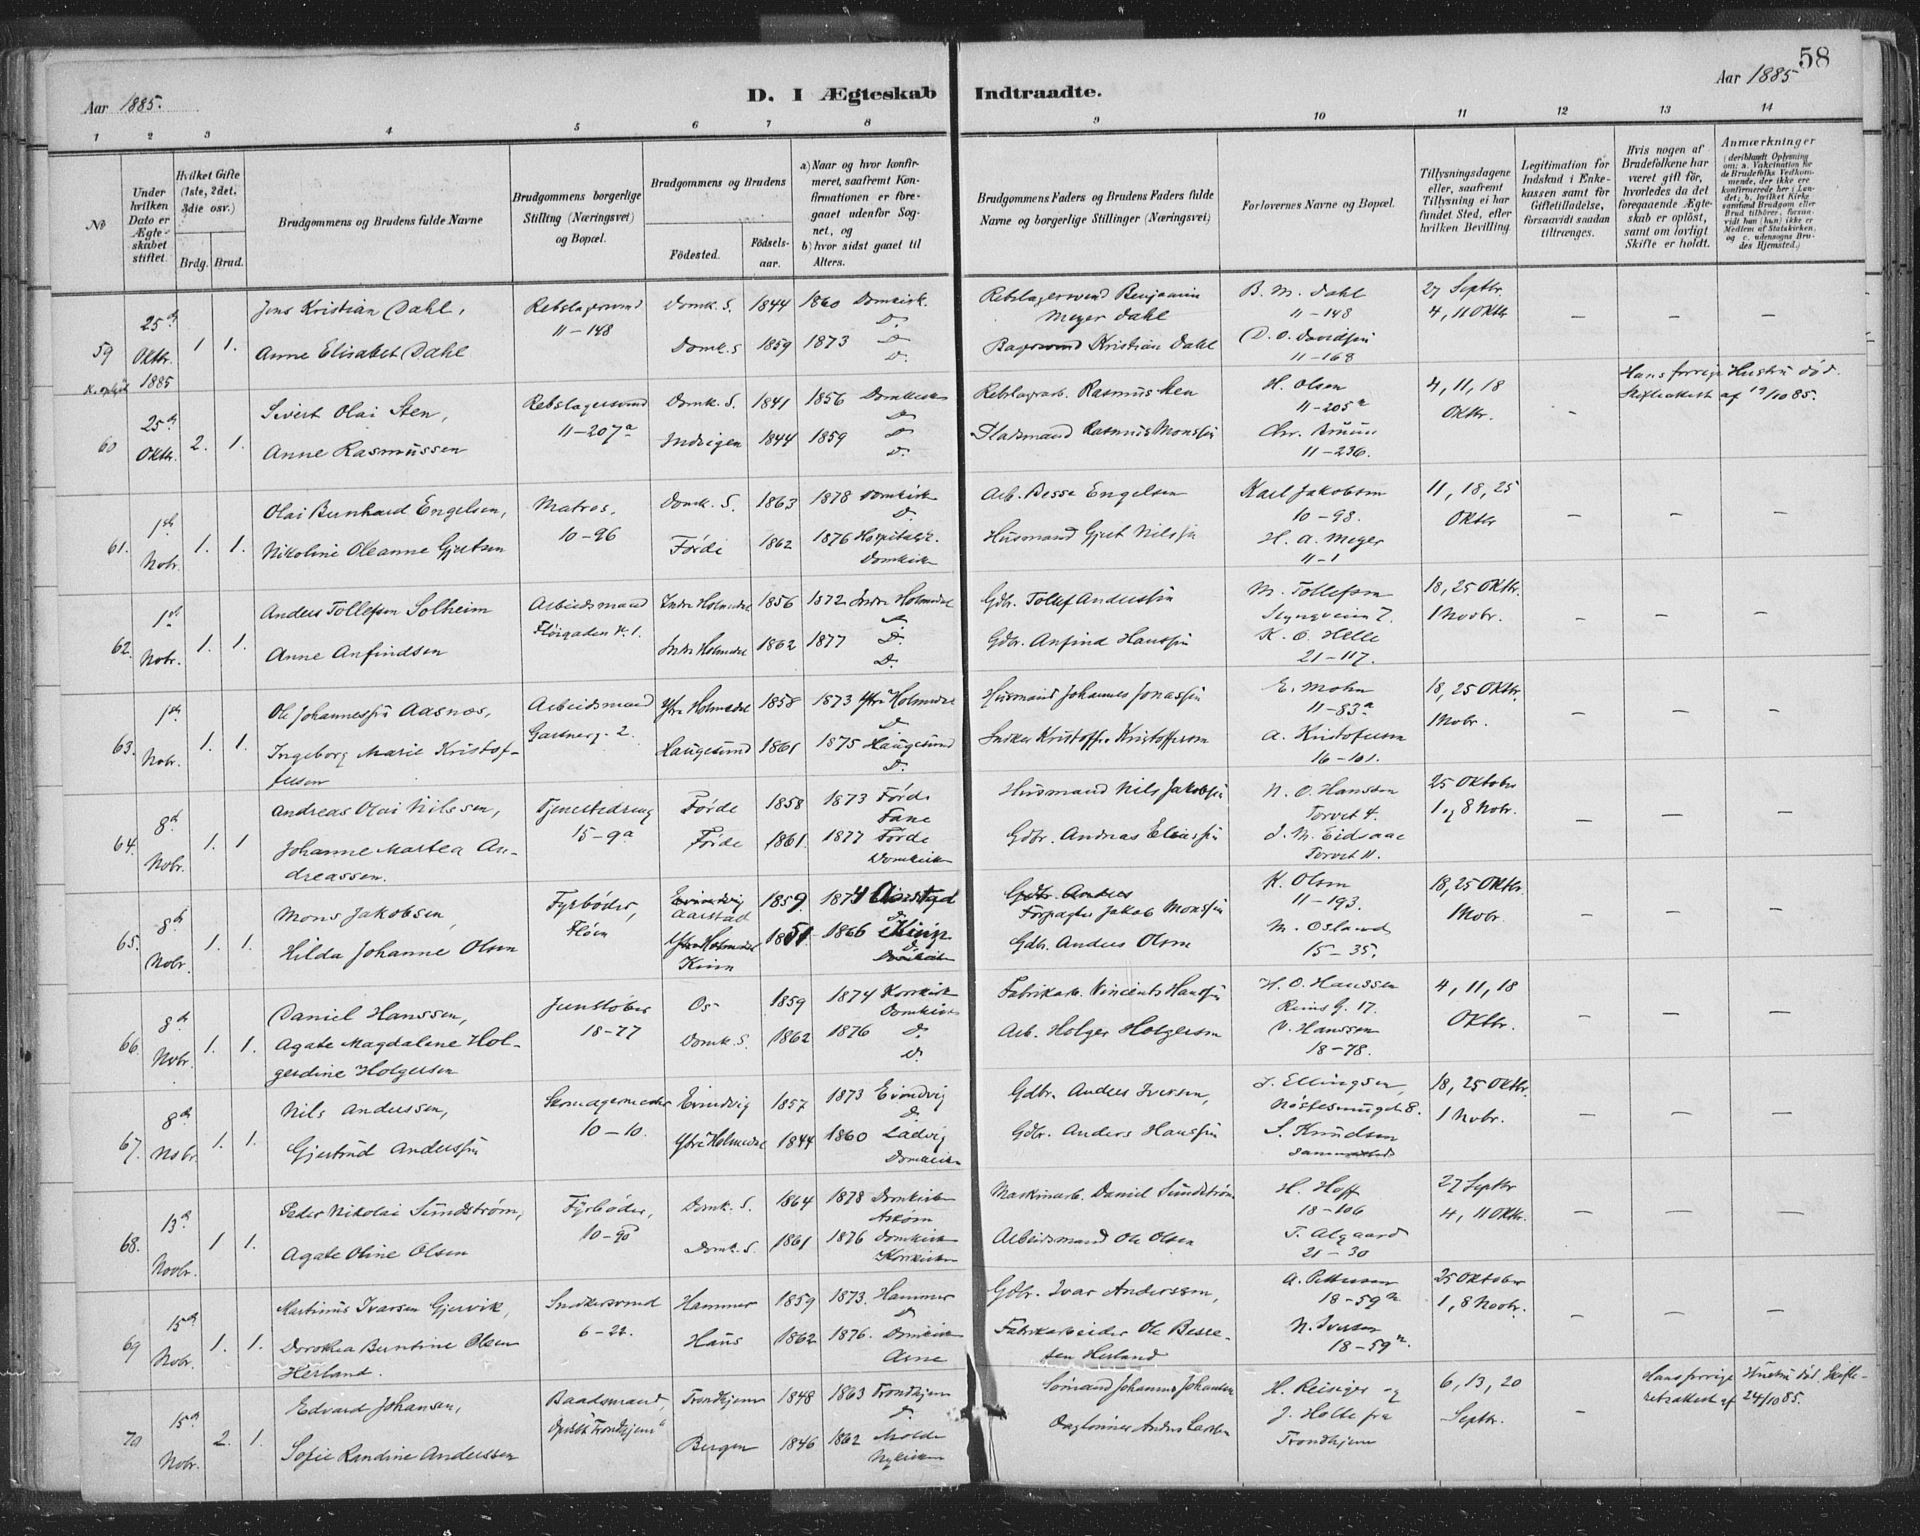 58
Aar 1885.
D. I Ægteskab Indtraadte.
Aar 1885
1 2 3 4 5 6 7 8 9 10 11 12 13 14
No
Under hvilken Dato er Ægteskabet stiftet.
Hvilket Gifte (1ste, 2det, 3die osv.)
Brdg. Brud.
Brudgommens og Brudens fulde Navne
Brudgommens borgerlige Stilling (Næringsvei) og Bopæl.
Brudgommens og Brudens
Fødested. Fødselsaar.
a) Naar og hvor konfirmeret, saafremt Konfirmationen er foregaaet udenfor Sognet, og
b) hvor sidst gaaet til Alters.
Brudgommens Faders og Brudens Faders fulde Navne og borgerlige Stillinger (Næringsvei)
Forlovernes Navne og Bopæl.
Tillysningsdagene eller, saafremt Tillysning ei har fundet Sted, efter hvilken Bevilling.
Legitimation for Indskud i Enkekassen samt for Giftetilladelse, forsaavidt saadan tiltrænges.
Hvis nogen af Brudefolkene har været gift før, hvorledes da det foregaaende Ægteskab er opløst, samt om lovligt Skifte er holdt.
Anmærkninger
(deriblandt Oplysning om: a. Vakcination for de Brudefolks Vedkommende, der ikke ere konfirmerede her i Landet; b. hvilket Kirkesamfund Brudgom eller Brud tilhører, forsaavidt han (hun) ikke er Medlem af Statskirken, og c. udensogns Brudes Hjemsted.)
59 25de Oktbr. 1885 1 1. Jens Kristian Dahl, Rebslagersvend 11-148 Domk. S. 1844 1860 Domkirk. D. Rebslagersvend Benjamin Meyer Dahl B. M. Dahl 11-148 27 Septbr. 4, 11 Oktbr. — — —
Anne Elisabet Dahl Domk. S 1859 1873 D. D. Kristian Dahl D. O. Davidsen 11-168
60 25de Oktbr. 2. 1. Sivert Olai Sten, Rebslagersvend 11-207a Domk. S. 1841 1856 Domkirken D. Rebslagerarb. Rasmus Sten H. Olsen 11-205a 4, 11, 18 Oktbr. - Hans forrige Hustru død. Skifteattest af 19/10 85.
Anne Rasmussen Indvigen 1844 1859 D. D. Pladsmand Rasmus Monsen Chr. Bruun 11-236.
61. 1ste Nobr. 1. 1. Olai Bernhard Engelsen, Matros, 10-96 Domk. S. 1863 1878 Domkirk D. Arb. Besse Engelsen Karl Jakobsen 10-98. 11, 18, 25 Oktbr — — —
Nikoline Oleanne Gjertsen Førde 1862 1876 Hospitalsk. Domkirken Husmand Gjert Nilsen H. A. Meyer 11-1
62. 1ste Nobr. 1. 1. Anders Tollefsen Solheim Arbeidsmand Fløigaden N. 1. Indre Holmedal 1856 1872 Indre Holmedal D. Gdbr. Tollef Andersen M. Tollefsen 7. 18, 25 Oktbr. 1 Novbr. — — —
Anne Anfindsen Indre Holmedal 1862 1877 D. D. Gdbr. Anfind Hanssen K. O. Helle 21-117.
63. 1ste Nobr. 1. 1. Ole Johannessen Aasnæs, Arbeidsmand Gartnerg. 2. Ytre Holmedal 1858 1873 Ytre Holmedal D. Husmand Johannes Jonassen E. Mohn 11-83a 18, 25 Oktbr. 1 Nobr. — — —
Ingeborg Marie Kristoffersen Haugesund 1861 1875 Haugesund D. Snekker Kristoffer Kristoffersen A. Kristofersen 16-101.
64. 8de Nobr. 1. 1 Andreas Olai Nilssen, Tjenestedreng 15-9a Førde 1858 1873 Førde Fane Husmand Nils Jakobsen N. O. Hanssen Torvet 4. 25 Oktober 1 og 8 Nobr. — — —
Johanne Martea Andreassen. Førde 1861 1877 Førde Domkirken Gdbr. Andreas Eliassen J. M. Eidsaae Torvet 11.
65. 8de Nobr. 1. 1. Mons Jakobsen, Fyrbøder, Fløien Evindvig Aarstad 1859. 1874 Aarstad D. Gdbr. Anders Forpagter Jakob Monssen K. Olsen 11-193. 18, 25 Oktbr. 1 Nobr. — — —
Hilda Johanne Olsen Ytre Holmedal Kinn 1851 1866 Kinn D. Domkirken Gdbr. Anders Olsen M. Osland 15-35.
66. 8de Nobr. 1. 1. Daniel Hanssen, Jernstøber 18-77 Os 1859 1874 Korskirk Domkirken Fabrikarb. Vincents Hanssen H. O. Hanssen 17. 4, 11, 18 Oktbr. — — —
Agate Magdalene Holgerdine Holgersen Domk. S. 1862 1876 D. D. Arb. Holger Holgersen V. Hanssen 18-78.
67. 8de Nobr. 1. 1. Nils Anderssen, Skomagermester 10-10. Evindvig 1857 1873 Evindvig D. Gdbr. Anders Iversen, J. Ellingsen, Nøstesmuget 8. 18, 25 Oktbr. 1 Nobr. — — —
Gjertrud Anderssen Ytre Holmedal 1844 1860 Ladvig Domkirken Gdbr. Anders Hanssen S. Knudsen sammesteds
68. 13de Novbr. 1 1. Peder Nikolai Sundstrøm, Fyrbøder, 10-90 Domk. S. 1864 1878 Domkirken Askøen Maskinarb. Daniel Sundstrøm H. Hoff 18-106 27 Septbr 4, 11 Oktbr. — — —
Agate Oline Olsen Domk. S. 1861 1876 Domkirken Korskirken Arbeidsmand Ole Olsen T. Algaard 21-30
69 15de Nobr. 1. 1. Martinus Ivarsen Gjervik, Snekkersvend 6-22. Hammer 1859 1873. Hammer D. Gdbr. Ivar Anderssen, A. Pettersen 18-59a 25 Oktober 1, 8 Novbr. — — —
Dorothea Berntine Olsen Herland. Haus 1862 1876. Domkirk Arne Fabrikarbeider Ole Bessesen Herland N. Iversen 18-59a.
70 15de Nobr. 2. 1. Edvard Johansen, Baadsmand, Opsk. "Trondhjem" Trondhjem 1848 1863 Trondhjem D. Sømand Johannes Johansen H. Reisiger og 6, 13, 20 Septbr. — Hans forrige Hustru død. Skifteretsattest af 24/10 85.
Sofie Randine Anderssen Bergen 1846 1862 Molde Nykirken Daglønner Anders Larsen J. Holte fra Trondhjem